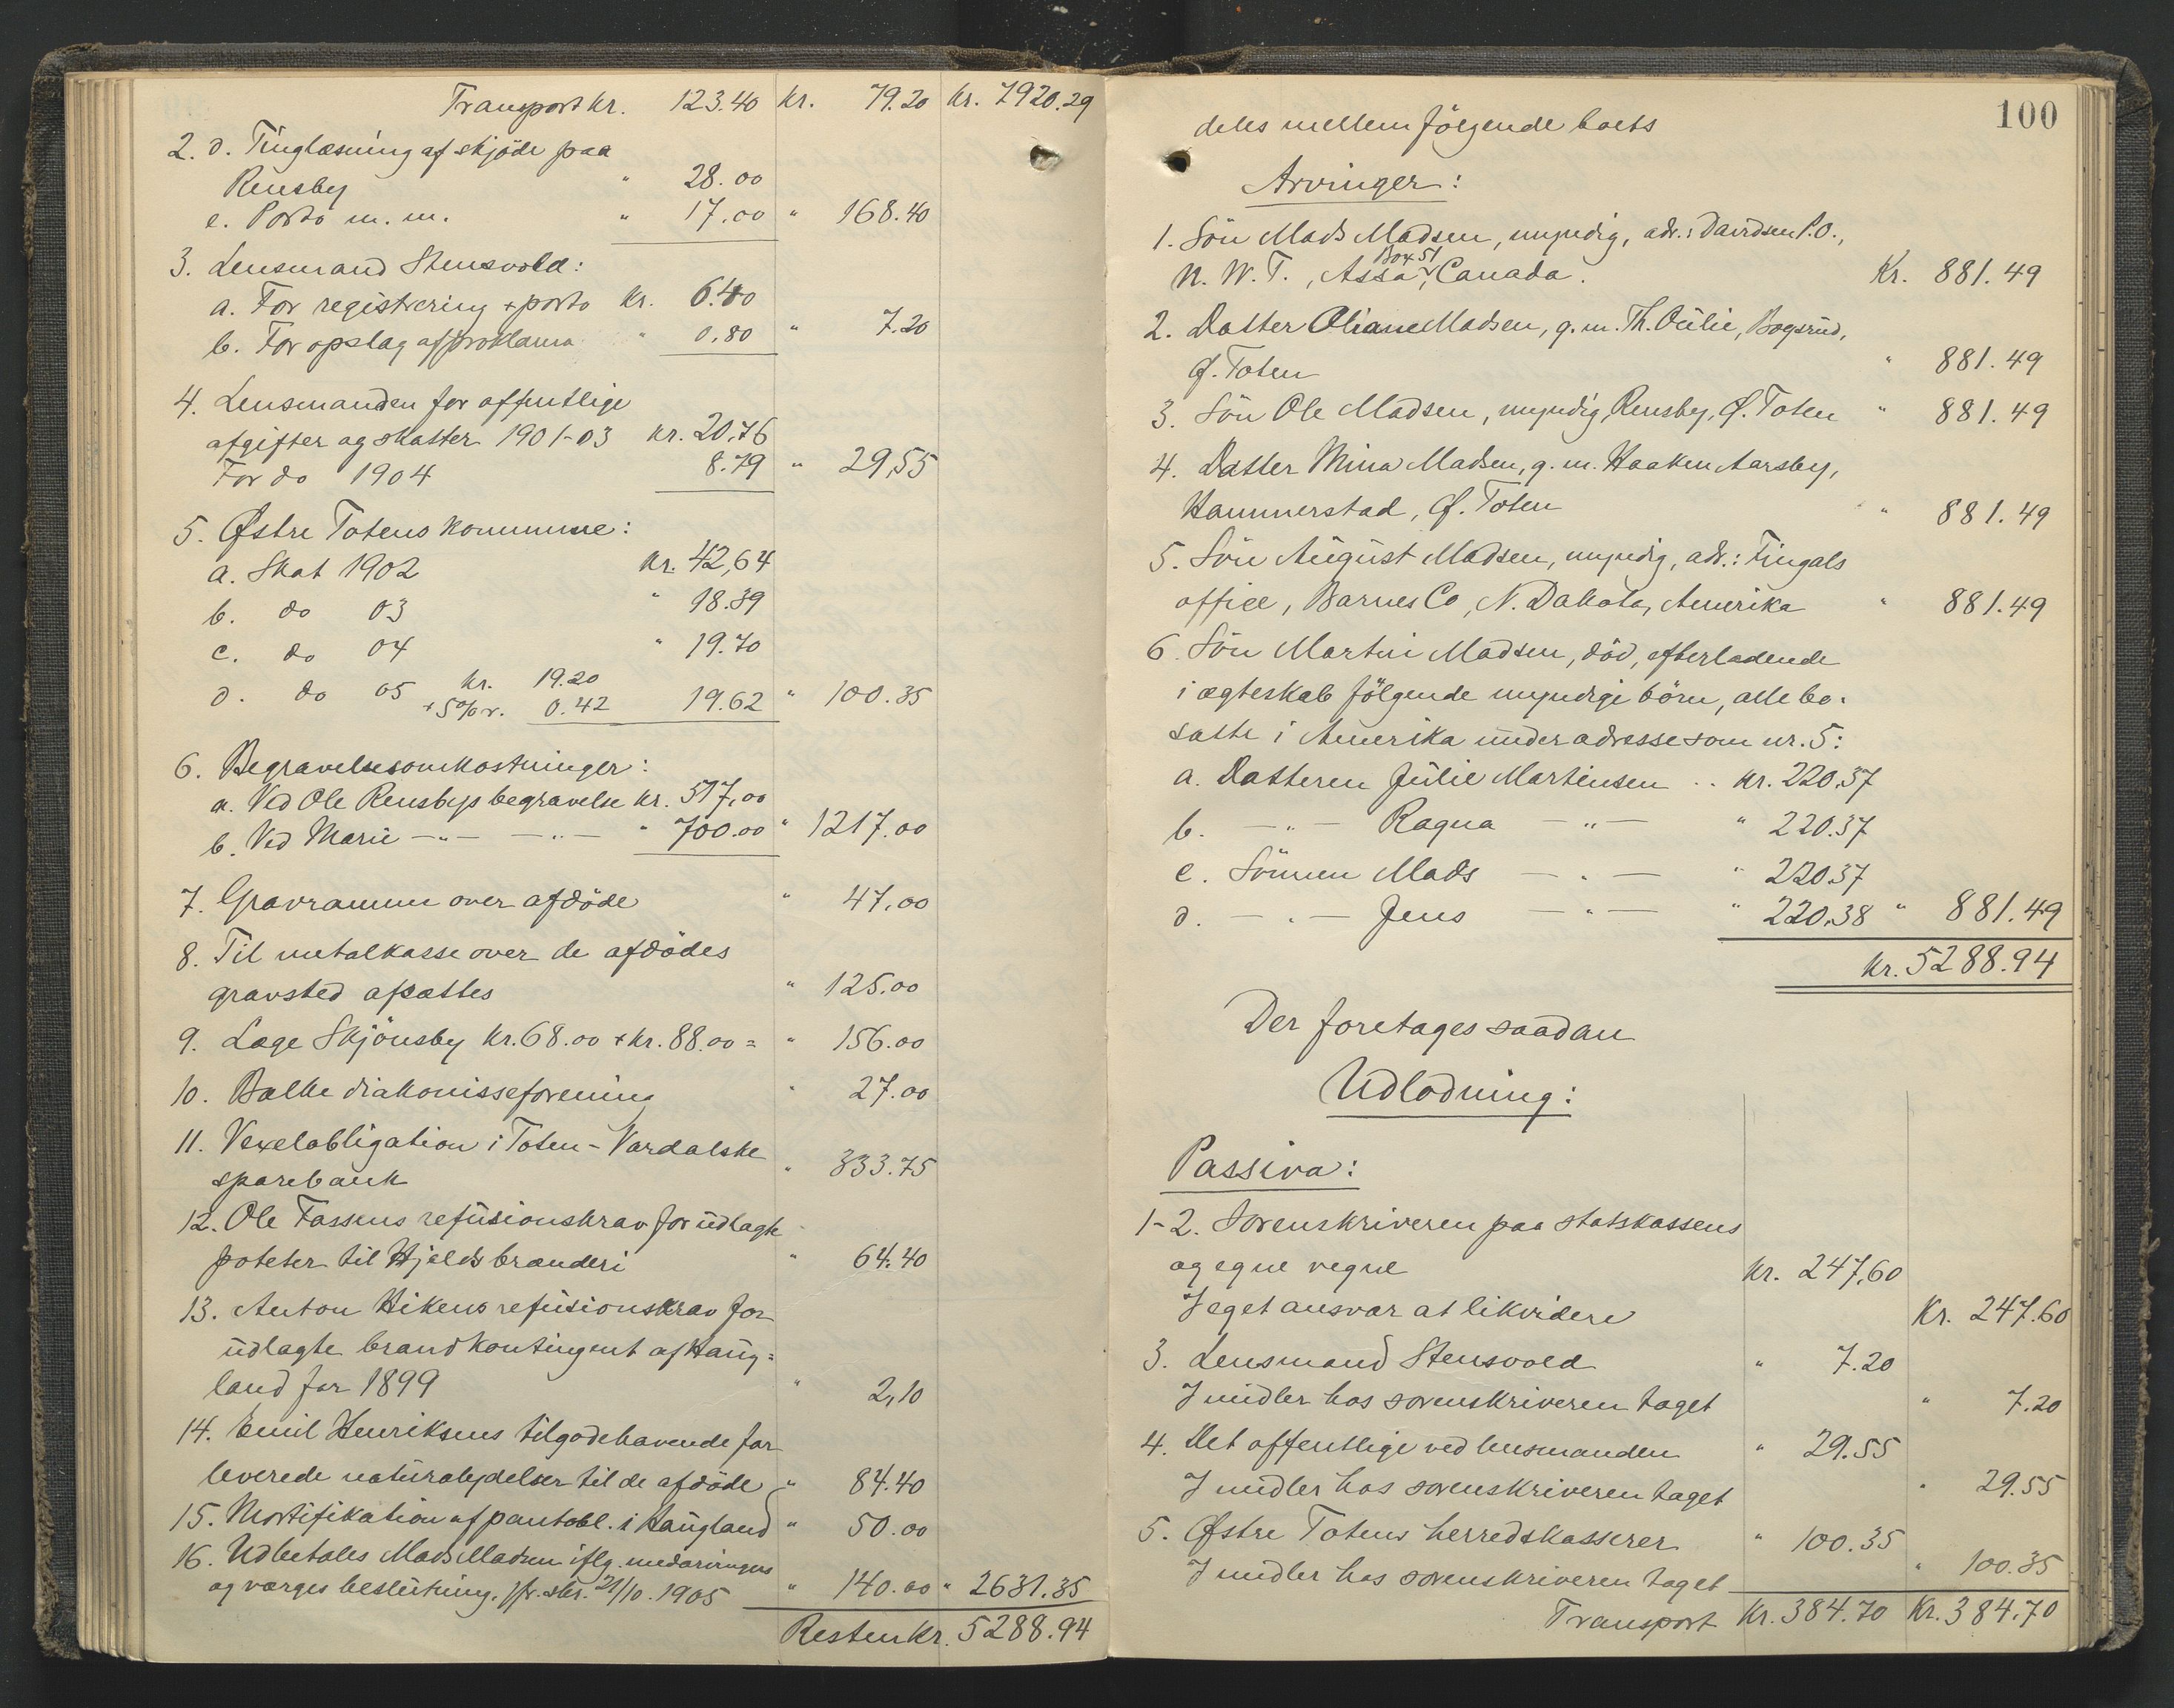 Transport kr. 123.40 kr. 79.20 kr. 7920.29
2. d. Tinglæsning af skjöde paa
Rensby " 28.00
e. Porto m. m. " 17.00 " 168.40
3. Lensmand Stensvold:
a. For registrering + porto kr. 6.40
b. For opslag af proklama " 0.80 " 7.20
4. Lensmanden for offentlige
afgifter og skatter 1901-03 kr. 20,76
For do 1904 8.79 " 29,55
5. Østre Totens kommune:
a. Skat 1902 kr. 42,64
b. do 03 " 18.39
c. do 04 " 19.70
kr. 19.20
d. do 05 + 5% r. 0.42 19.62 " 100.35
6. Begravelsesomkostninger:
a. Ved Ole Rensbys begravelse kr. 517,00
b. Ved Marie —"— —"— " 700.00 " 1217.00
7. Gravramme over afdöde " 47.00
8. Til metalkasse over de afdödes
gravsted afsættes " 125.00
9. Læge Skjönsby kr. 68.00 + kr. 88.00 = " 156.00
10. Balke diakonisseforening " 27.00
11. Vexelobligation i Toten-Vardalske
sparebank " 333.75
12. Ole Fossens refusionskrav for udlagte
poteter til Hjelds brænderi " 64.40
13. Anton Vikens refusionskrav for
udlagte brandkontingent af Haug=
land for 1899 " 2,10
14. Emil Henriksens tilgodehavende for
leverede naturalydelser til de afdöde " 84.40
15. Mortifikation af pantobl. i Haugland " 50.00
16. Udbetales Mads Madsen iflg. medarvingers
og værges beslutning, jfr. skr. 21/10. 1905 " 140.00 " 2631.35
Resten kr. 5288.94
100
deles mellem fölgende boets
Arvinger:
1. Sön Mads Madsen, myndig, adr.: Davidsen P.O.,
Box 51
N. W. T., Assa, Canada. Kr. 881.49
2. Datter Oliane Madsen, g. m. Th. Oulie, Bogsrud,
Ø. Toten " 881.49
3. Sön Ole Madsen, myndig, Rensby, Ø. Toten " 881.49
4. Datter Mina Madsen, g. m. Haaken Aarsby,
Hammerstad, Ø. Toten " 881.49
5. Sön August Madsen, myndig, adr.: Fingals
office, Barnes Co, N. Dakota, Amerika " 881.49
6. Sön Martin Madsen, död, efterladende
i ægteskab fölgende myndige börn, alle bo-
satte i Amerika under adresse som nr. 5:
a. Datteren Julie Martinsen .. kr. 220,37
b. —"— Ragna —"— " 220.37
c. Sönnen Mads —"— " 220.37
d. —"— Jens —"— " 220.38 " 881.49
kr. 5288.94
Der foretages saadan
Udlodning:
Passiva:
1-2. Sorenskriveren paa statskassens
og egne vegne kr. 247,60
I eget ansvar at likvidere Kr. 247.60
3. Lensmand Stensvold " 7.20
I midler hos sorenskriveren taget " 7.20
4. Det offentlige ved lensmanden " 29.55
I midler hos sorenskriveren taget " 29.55
5. Østre Totens herredskasserer " 100.35
I midler hos sorenskriveren taget " 100.35
Transport Kr. 384.70 Kr. 384.70